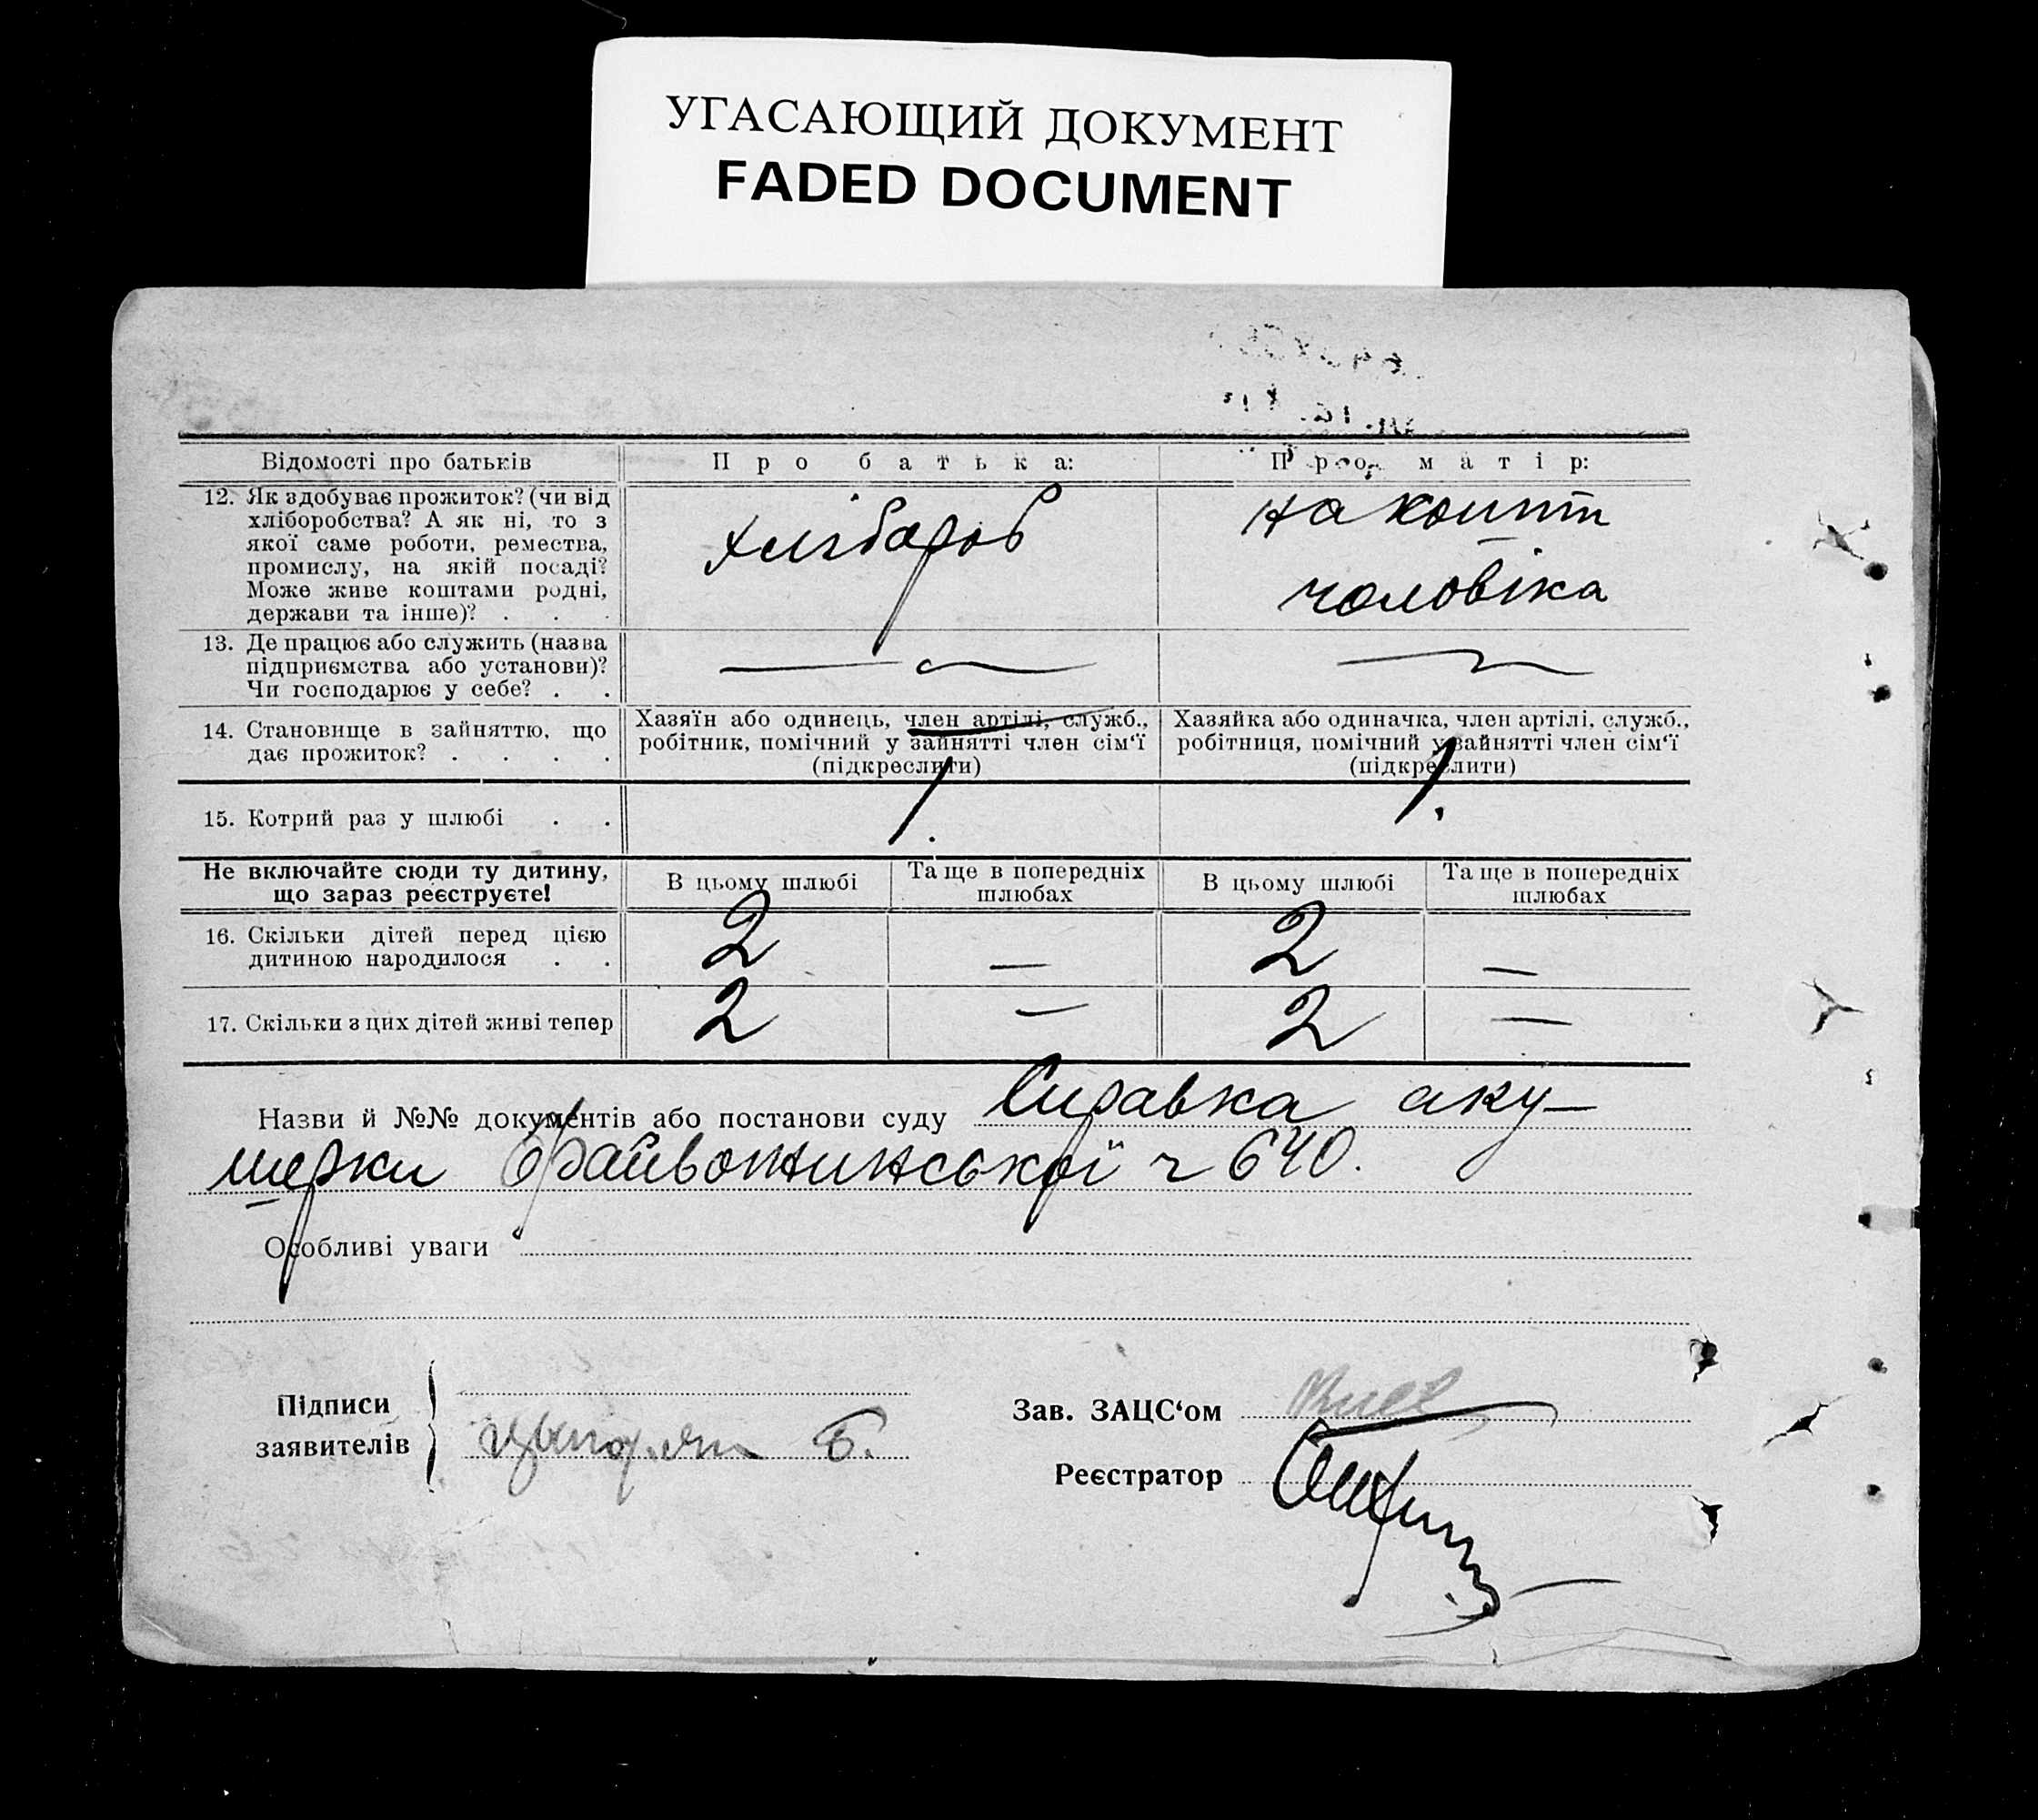 УГАСАЮЩИЙ ДОКУМЕНТ
FADED DOCUMENT
Відомості про батьків
Про батька:
Про матір:
12. Як здобуває прожиток? (чи від
хліборобства? А як ні, то з
якої саме роботи, ремества,
промислу, на якій посаді?
Може живе коштами родні,
держави та інше)? . . .
хлібороб
на кошти
чоловіка
13. Де працює або служить (назва
підприємства або установи)?
Чи господарює у себе? . .
—
—
14. Становище в зайняттю, що
дає прожиток? . . . .
Хазяїн або одинець, член артілі, служб.,
робітник, помічний у зайнятті член сім‘ї
(підкреслити)
Хазяйка або одиначка, член артілі, служб.,
робітниця, помічний у зайнятті член сім‘ї
(підкреслити)
15. Котрий раз у шлюбі . .
1.
1.
Не включайте сюди ту дитину,
що зараз реєструєте!
В цьому шлюбі
Та ще в попередніх
шлюбах
В цьому шлюбі
Та ще в попередніх
шлюбах
16. Скільки дітей перед цією
дитиною народилося . .
2
—
2
—
17. Скільки з цих дітей живі тепер
2
—
2
—
Назви й №№ документів або постанови суду Справка аку-
шерки ч 640.
Особливі уваги
Підписи
заявителів
Б.
Зав. ЗАЦС‘ом
Реєстратор